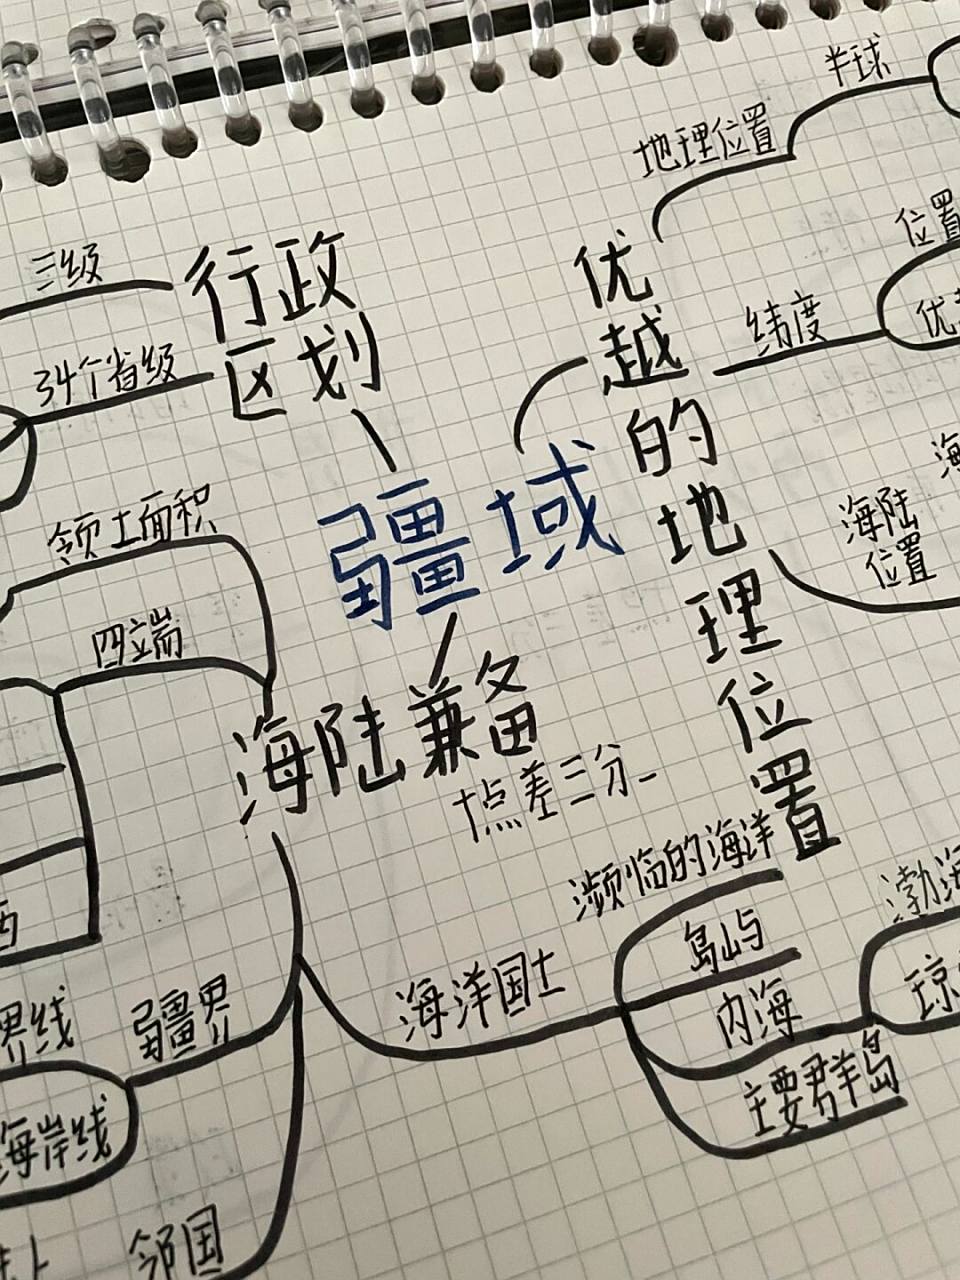 半球
地理位置
位置
纬度
海陆
位置
优越的地理位置
行政
区划
三级
34个省级
疆域
领土面积
四端
海陆兼备
十点差三分
西
界线
疆界
海岸线
邻国
海洋国土
濒临的海洋
岛屿
内海
渤海
琼
主要群岛